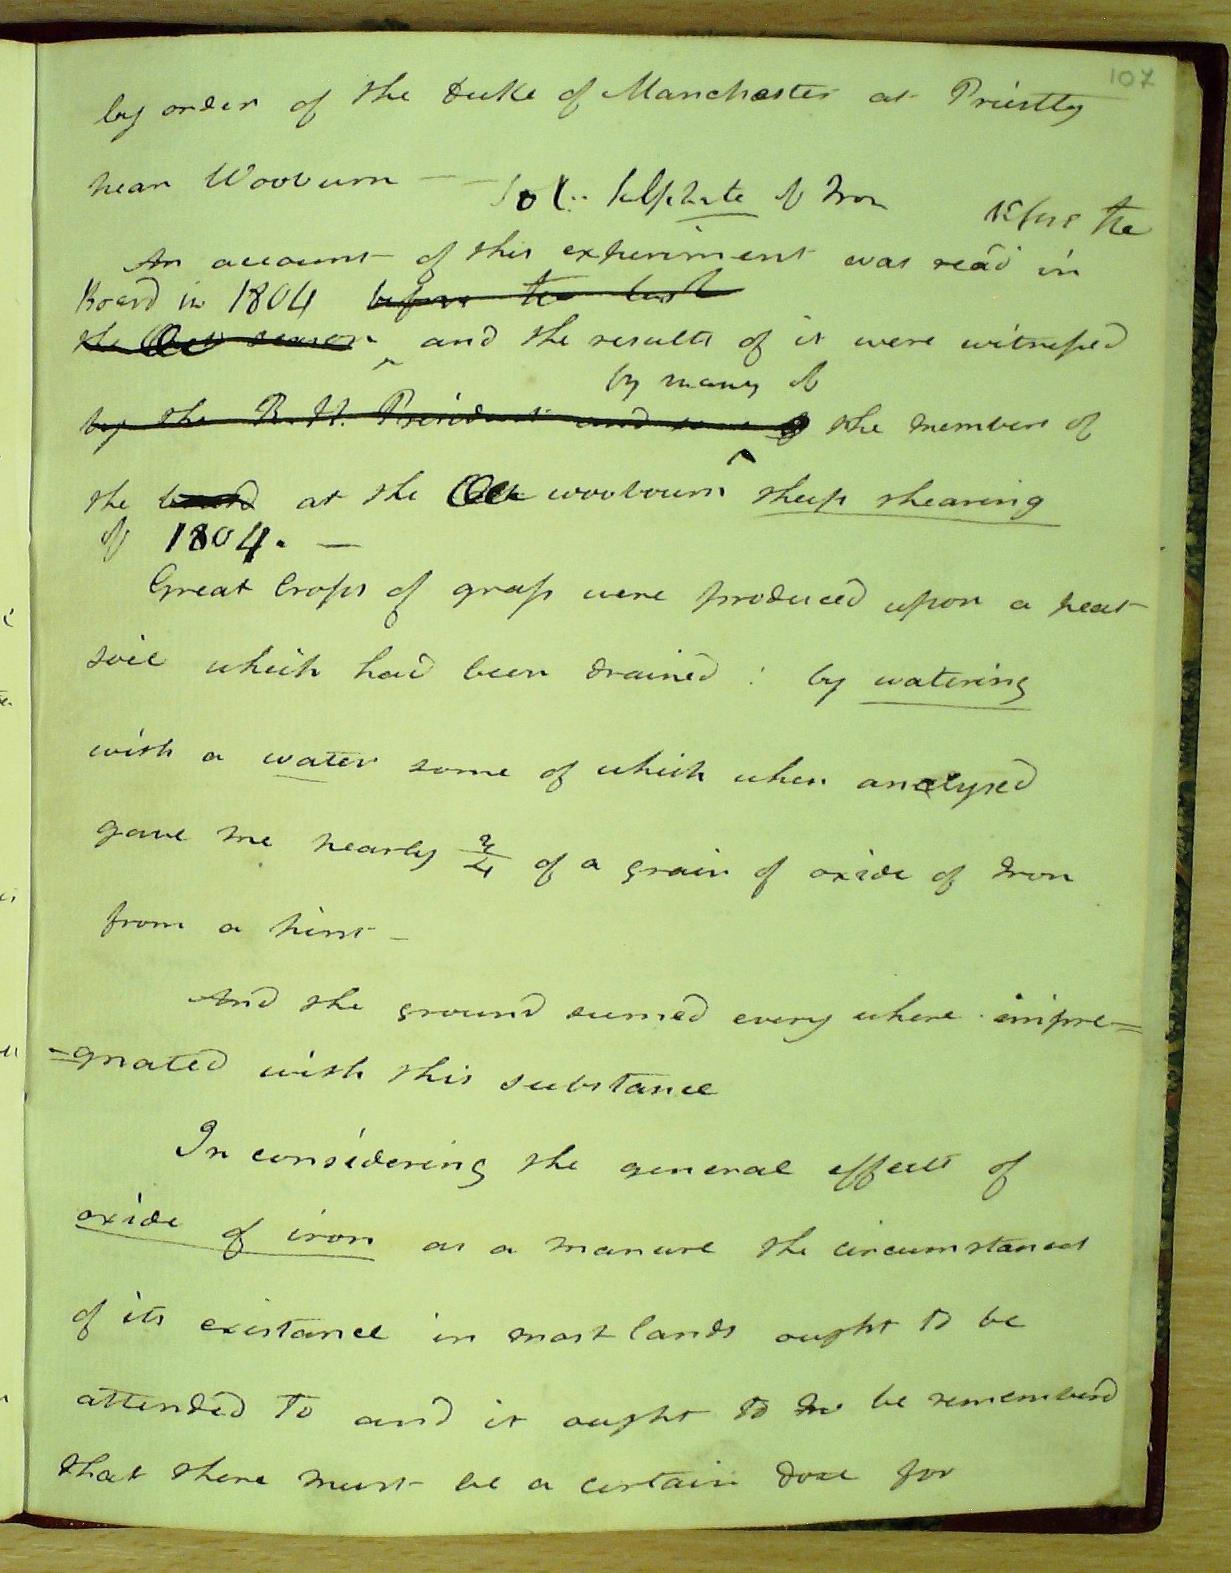 107
by order of the Duke of Manchester at Priestly
near Wooburn — Sol: Sulphate of Iron
before the
An account of this experiment was read in
Board in 1804 before the last
the season and the results of it were witnessed
by many of
by the R. H. President and some of the members of
the board at the woobourn sheep shearing
of 1804. —
Great Crops of grass were produced upon a peat
soil which had been drained : by watering
with a water some of which when analysed
gave me nearly 3/4 of a grain of oxide of Iron
from a pint –
And the ground seemed every where impre=
=gnated with this substance
In considering the general effects of
oxide of iron as a manure the circumstances
of its existance in most lands ought to be
attended to and it ought to be remembered
that there must be a certain dose for